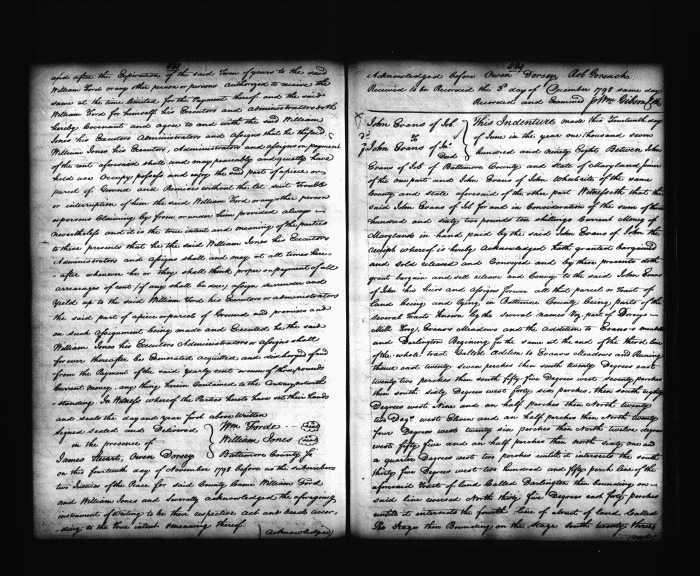 and after the Expiration of the said Term of years to the said
William Ford or any other person or persons authorized to receive the
same at the time limited for the Payment thereof and the said
William Ford for himself his Executors and administrators doth
hereby Covenant and agree to and with the said William
Jones his Executors Administrators and assigns that he the said
William Jones his Executors Administrators and assigns on payment
of the rent aforesaid shall and may peaceably and quietly have
hold use Occupy possess and enjoy the said part of a piece or
parcel of Ground and Premises without the let suit Trouble
or interruption of him the said William Ford or any other person
or persons Claiming by from or under him provided always
nevertheless and it is the true intent and meaning of the parties
to these presents that he the said William Jones his Executors
Administrators and assigns shall and may at all times here
after whenever he or they shall think proper on payment of all
arrearages of rent (if any shall be due) assign surrender and
Yield up to the said William Ford his Executors or administrators
the said part of a piece or parcel of Ground and premises and
on such assignment being made and Executed he the said
William Jones his Executors Administrators or assigns shall
for ever thereafter be Exonerated acquitted and discharged of and
from the Payment of the said yearly rent of pounds
Current money any thing herein Contained to the Contrary notwith
standing In Witness whereof the Parties hereto have set their hands
and seals the day and year first above written
Signed sealed and Delivered } Wm Forde (seal)
in the presence of William Jones (seal)
James Stuart, Owen Dorsey Baltimore County Js
on this fourteenth day of November 1798 Before us the subscribers
two Justices of the Peace for said County Came William Ford
and William Jones and severally acknowledged the aforegoing
instrument of Writing to be their respective act and deeds accor
ding to the true intent & meaning thereof.
(Acknowledged)
639
Acknowledged before Owen Dorsey, Rob Gorsuch
Received to be Recorded the 3d day of December 1798 same day
Recorded and Examined Wm Gibson Clk
John Evans of Job } This Indenture made this Fourteenth day
to of June in the year one thousand seven
John Evans of Jno hundred and ninety Eight Between John
Deed
Evans of Job of Baltimore County and State of Maryland
of the one part and John Evans of John of the same
County and state aforesaid of the other part Witnesseth that the
said John Evans of Job for and in Consideration of the sum of three
hundred and sixty two pounds ten shillings Current Money of
Maryland in hand paid by the said John Evans of John the
receipt whereof is hereby Acknowledged hath granted bargained
and sold released and Conveyed and by these presents doth
grant bargain and sell release and Convey to the said John Evans
of John his heirs and assigns forever all that parcel or tract of
land being and lying in Baltimore County being parts of the
several tracts known by the several names Viz, part of Dorseys
Evans's Meadows and the addition to Evans's meadows
and Darlington Beginning for the same at the end of the third line
of the whole tract Called Addition to Evans's Meadows and Running
thence east twenty seven perches then south twenty Degrees east
twenty two perches then south fifty five Degrees west seventy perches
then south sixty Degrees west forty six perches, then south eighty
Degrees west Nine and an half perches then North twenty
two Degs west Eleven and an half perches then North twenty
four Degrees west twenty six perches then North twelve degrees
west fifty five and an half perches then north sixty one and
a quarter Degrees west two perches untill it intersects the south
thirty five Degrees west two hundred and fifty perch line of the
aforesaid tract of land Called Darlington then bounding on
said line reversed North thirty five Degrees east forty perches
untill it intersects the fourth line of a tract of land Called
The Stage then Bounding on the Stage South twenty three